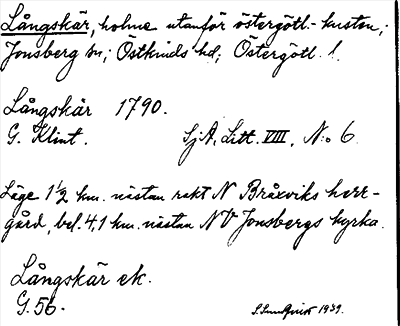 Långskär, holme utanför östergötl.-kusten;
Jonsberg sn; Östkinds hd; Östergötl. l.
Långskär 1790.
G. Klint. SjA, Litt. VIII, N:o 6
Läge 1 1/2 km. nästan rakt N Bråxviks herr-
gård, bel. 4,1 km. nästan NV Jonsbergs kyrka.
Långskär ek.
G. 56.
S. Sundqvist 1939.